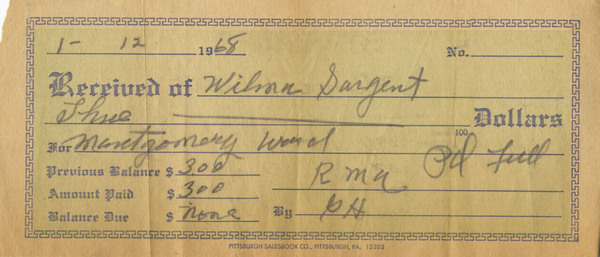 1- 12 1968 No.
Received of Wilma Sargent
Three Dollars
For Montgomery Ward 100 Pd full
Previous Balance $ 300
Amount Paid $ 300 R M A
Balance Due $ none By G H
PITTSBURGH SALESBOOK CO., PITTSBURGH, PA. 15203